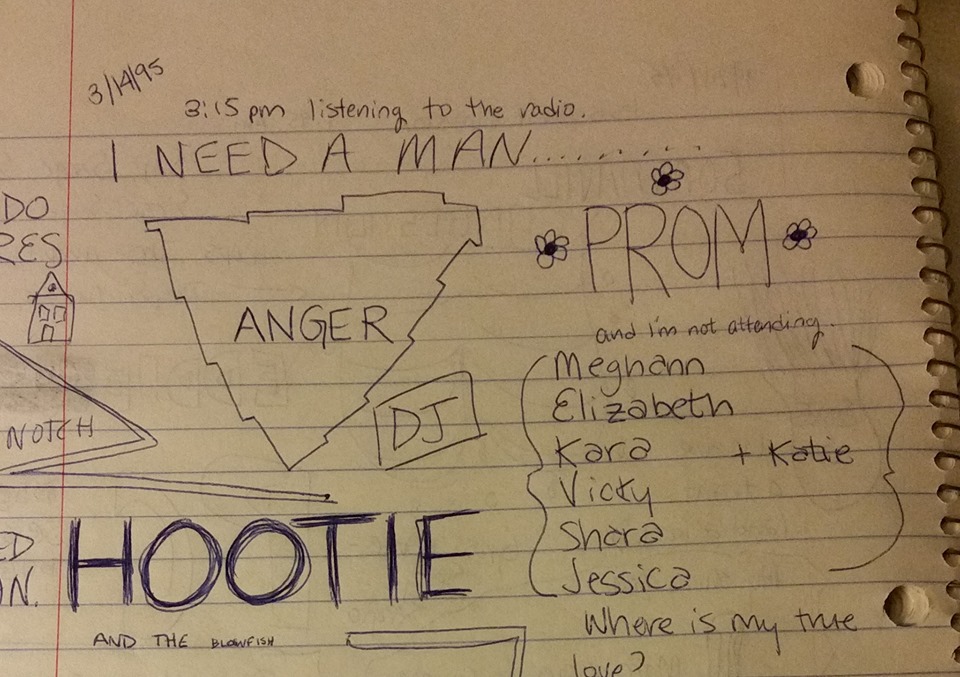 3/14/95
3:15 pm listening to the radio.
I NEED A MAN.........
DO
RES
PROM
and i'm not attending.
ANGER
Meghann
Elizabeth
Kara + Katie
Vicky
Shara
Jessica
DJ
NOTCH
ED
ON.
HOOTIE
AND THE BLOWFISH
Where is my true
love?